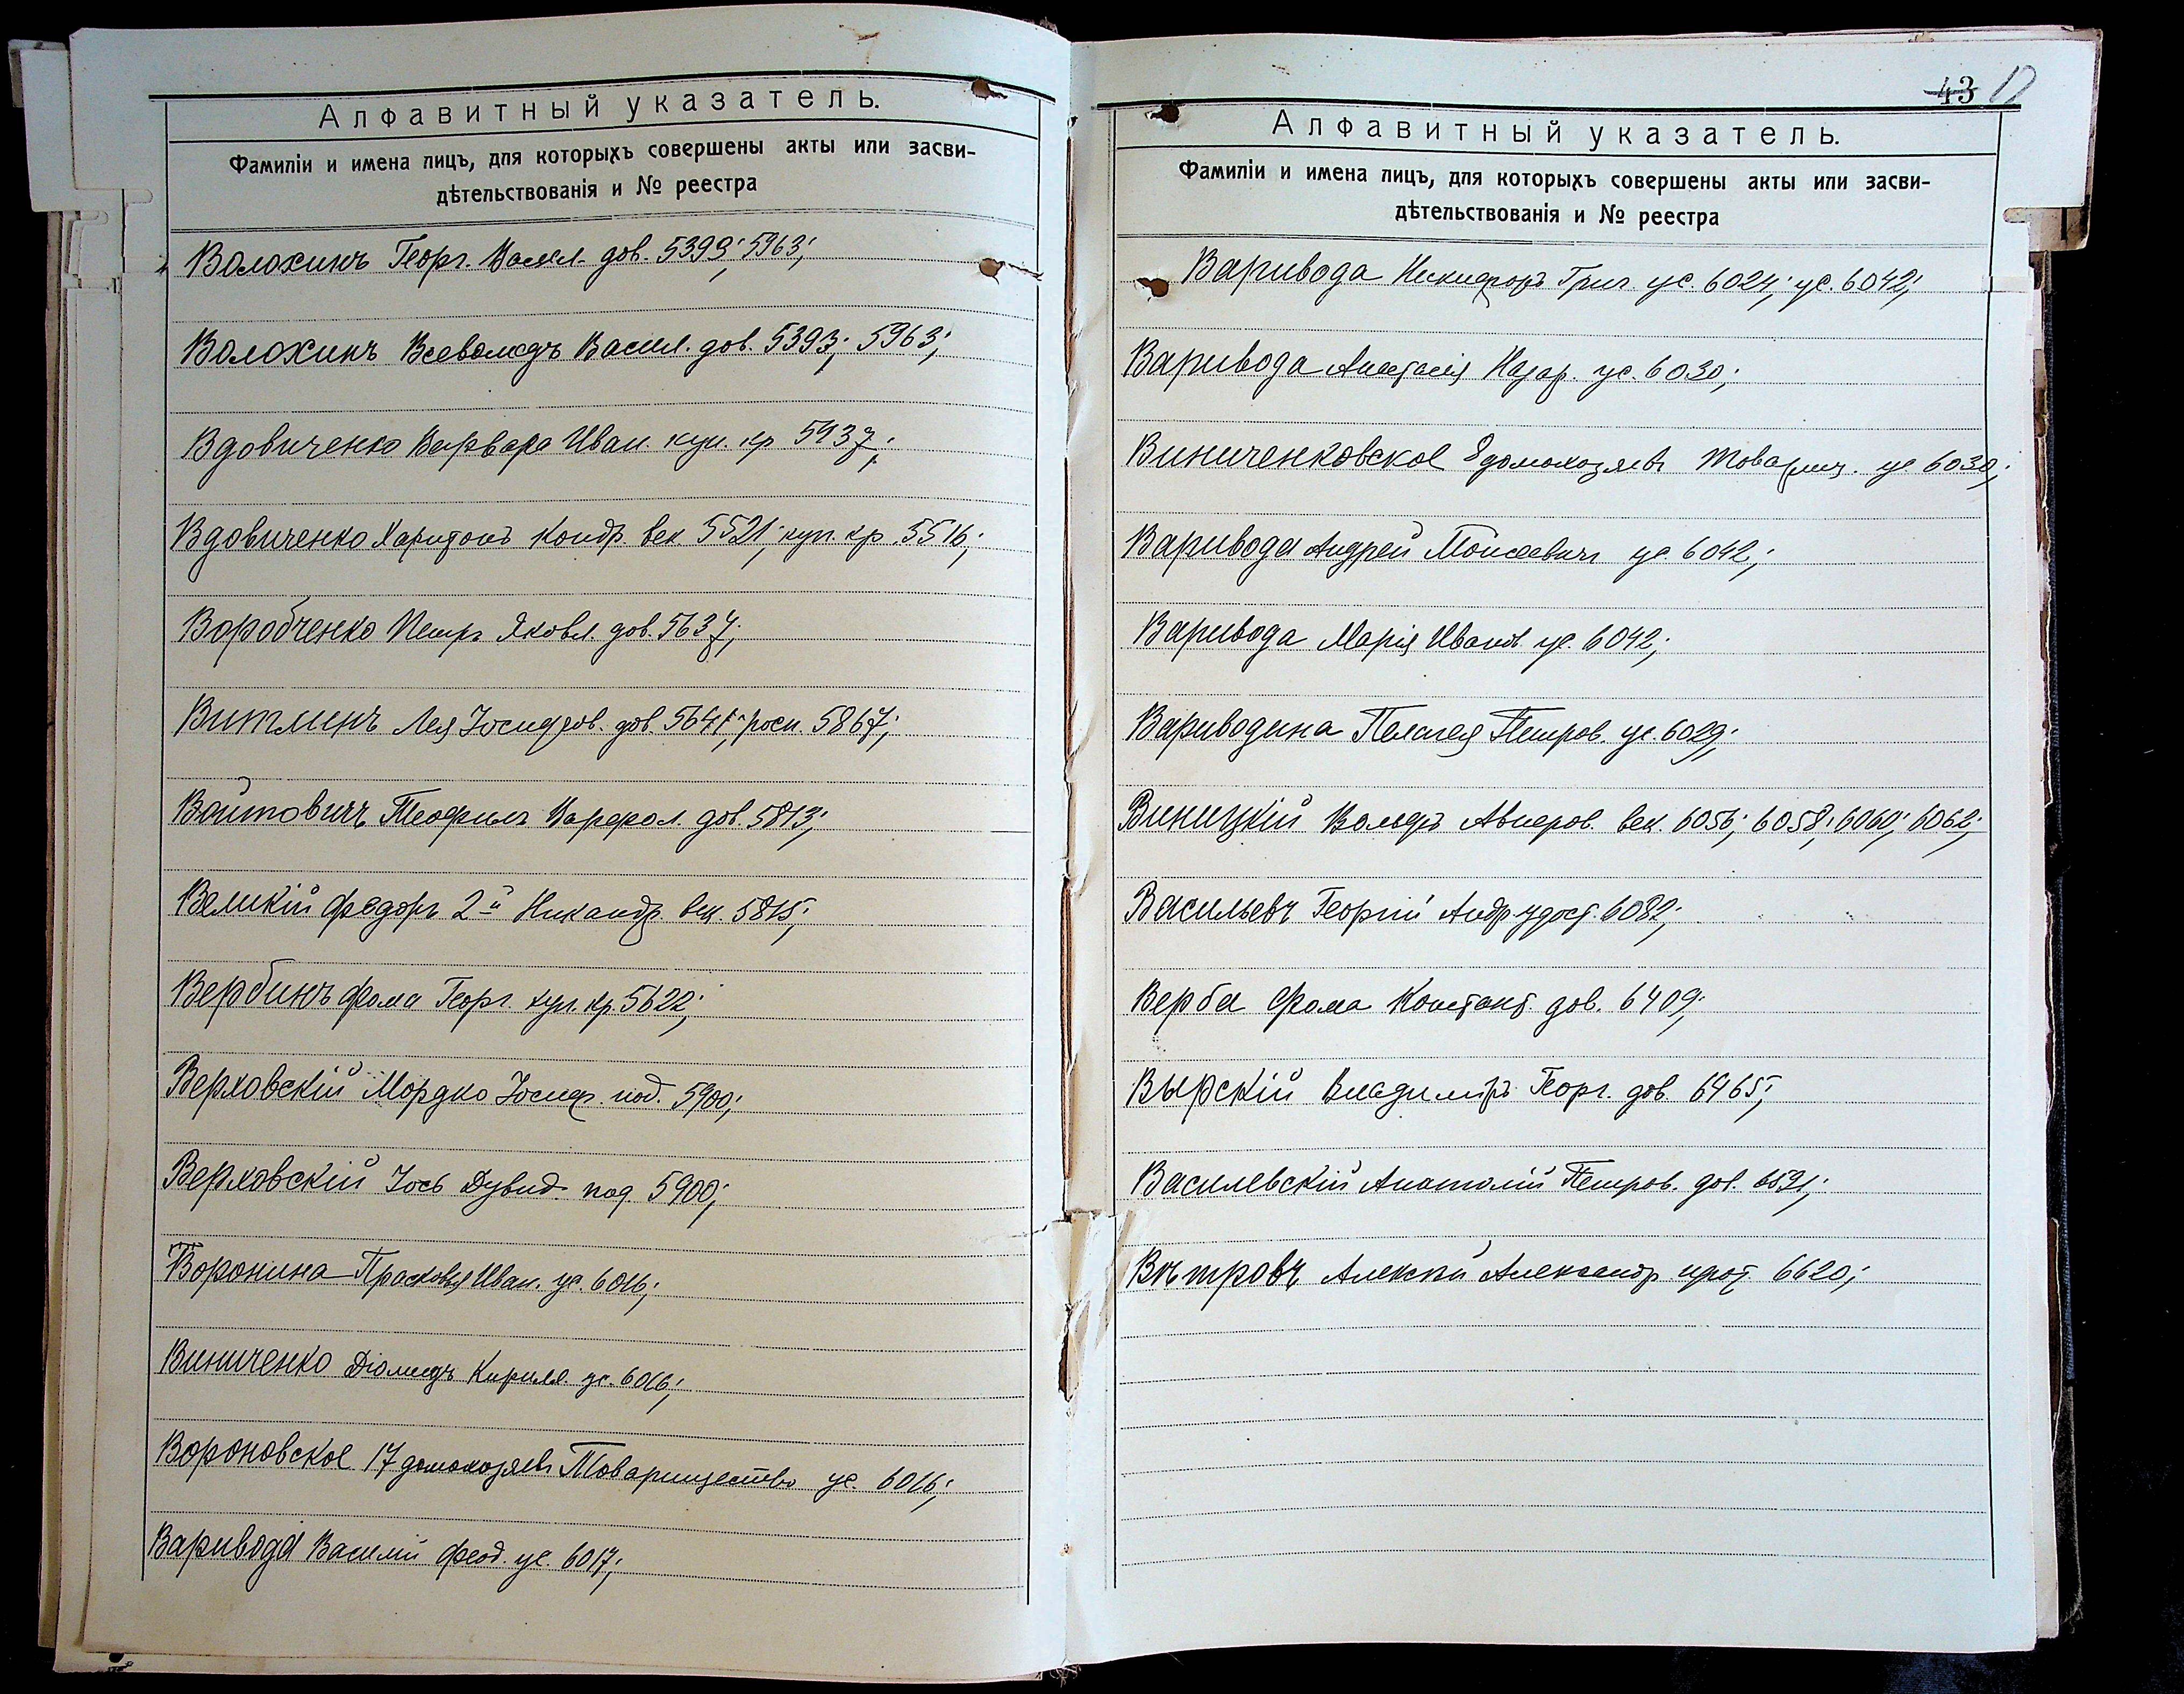 Алфавитный указатель.
Фамиліи и имена лицъ, для которыхъ совершены акты или засви-
дѣтельствованія и № реестра
Волохинъ Георг. Васил. дов. 5393; 5963;
Волохинъ Всеволодъ Васил. дов. 5393; 5963;
Вдовиченко Варвара Иван. куп. кр 5937;
Вдовиченко Харитонъ Кондр. век. 5521; куп. кр. 5516;
Воробченко Петръ Яковл. дов. 5637;
Витлинъ Лея Іосифов. дов. 5641; росп. 5867;
Войтовичъ Теофилъ Варфол. дов. 5813;
Великій Федоръ 2й Никандр. век. 5815;
Вербинъ Фома Георг. куп. кр. 5622;
Верховскій Мордко Іосиф. под. 5900;
Верховскій Іось Дувид. под. 5900;
Воронина Прасковья Иван. ус. 6016;
Виниченко Діомидъ Кирилл. ус. 6016;
Вороновское 17 домохозяевъ Товарищество ус. 6016;
Варивода Василій Феод. ус. 6017;
43 12
Алфавитный указатель.
Фамиліи и имена лицъ, для которыхъ совершены акты или засви-
дѣтельствованія и № реестра
Варивода Никифоръ Григ. ус. 6024; ус. 6042;
Варивода Анастасія Назар. ус. 6030;
Виниченковское 8 домохозяевъ Товарищ. ус. 6030;
Варивода Андрей Моисеевичъ ус. 6042;
Варивода Марія Иванов. ус. 6042;
Вариводина Пелагея Петров. ус. 6029;
Виницкій Вольфъ Авнеров. век. 6056; 6058; 6060; 6062;
Васильевъ Георгій Андр. удост. 6082;
Верба Фома Констант. дов. 6409;
Вырскій Владиміръ Георг. дов. 6465;
Василевскій Анатолій Петров. дов. 6591;
Вѣтровъ Алексѣй Александр. прот. 6620;